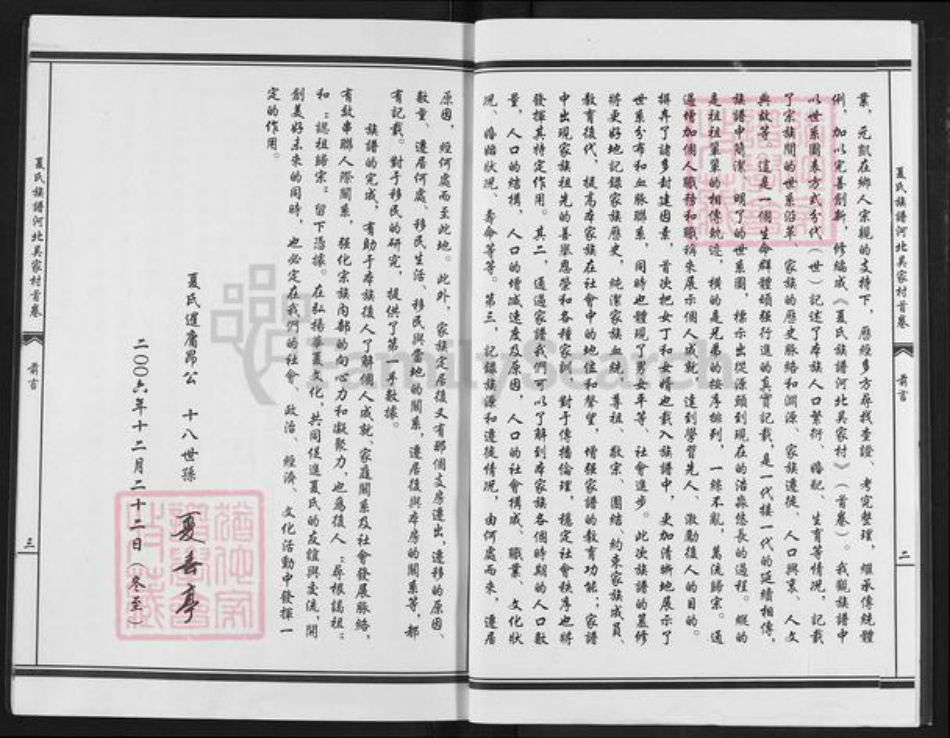 業，元凱在鄉人宗親的支持下，歷經多方尋找查證、考究整理，繼承傳統體
例，加以完善創新，修編成《夏氏族譜河北吴家村》（首卷）。我觀族譜中
以世系圖表方式分代（世）記述了本族人口繁衍、婚配、生育等情况，記載
了宗族間的世系沿革、家族的歷史脉絡和淵源、家族遷徙、人口興衰、人文
典故等。這是一個生命群體頑强行進的真實記載，是一代接一代的延續相傳，
族譜中簡潔、明了的世系圖，標示出從源頭到現在的浩淼悠長的過程。縱的
是祖祖輩輩的相傳軌迹，横的是兄弟的按序排列，一絲不亂，萬流歸宗。通
過增加個人職務和職稱來展示個人成就，達到學習先人、激勵後人的目的。
摒弃了諸多封建因素，首次把女丁和女婿也載入族譜中，更加清晰地展示了
世系分布和血脉聯系，同時也體現了男女平等、社會進步。此次族譜的纂修
將更好地記録家族歷史，純潔家族血統，尊祖、敬宗、團結、約束家族成員、
教育後代，提高本家族在社會中的地位和聲望，增强家譜的教育功能；家譜
中出現家族祖先的善舉恩榮和各種家訓，對于傳播倫理，穩定社會秩序也將
發揮其特定作用。其二，通過家譜我們可以了解到本家族各個時期的人口數
量，人口的結構，人口的增减速度及原因，人口的社會構成、職業、文化狀
况、婚姻狀况、壽命等等。第三，記録族源和遷徙情况，由何處而來，遷居
夏氏族譜河北吴家村首卷
前言
二
原因，經何處而至此地。此外，家族定居後又有那個支房遷出，遷移的原因、
數量、遷居何處、移民生活、移民與當地的關系，遷居後與本房的關系等，都
有記載。對于移民的研究，提供了第一手數據。
族譜的完成，有助于本族後人了解個人成就、家庭關系及社會發展脉絡，
有效串聯人際關系，强化宗族内部的向心力和凝聚力，也爲後人“尋根謁祖”
和“認祖歸宗”留下憑據。在弘揚華夏文化，共同促進夏氏的友誼與交流，開
創美好未來的同時，也必定在我們的社會、政治、經濟、文化活動中發揮一
定的作用。
夏氏遷膺昂公 十八世孫 夏喜亭
二00六年十二月二十二日（冬至）
夏氏族譜河北吴家村首卷
前言
三
FamilySearch